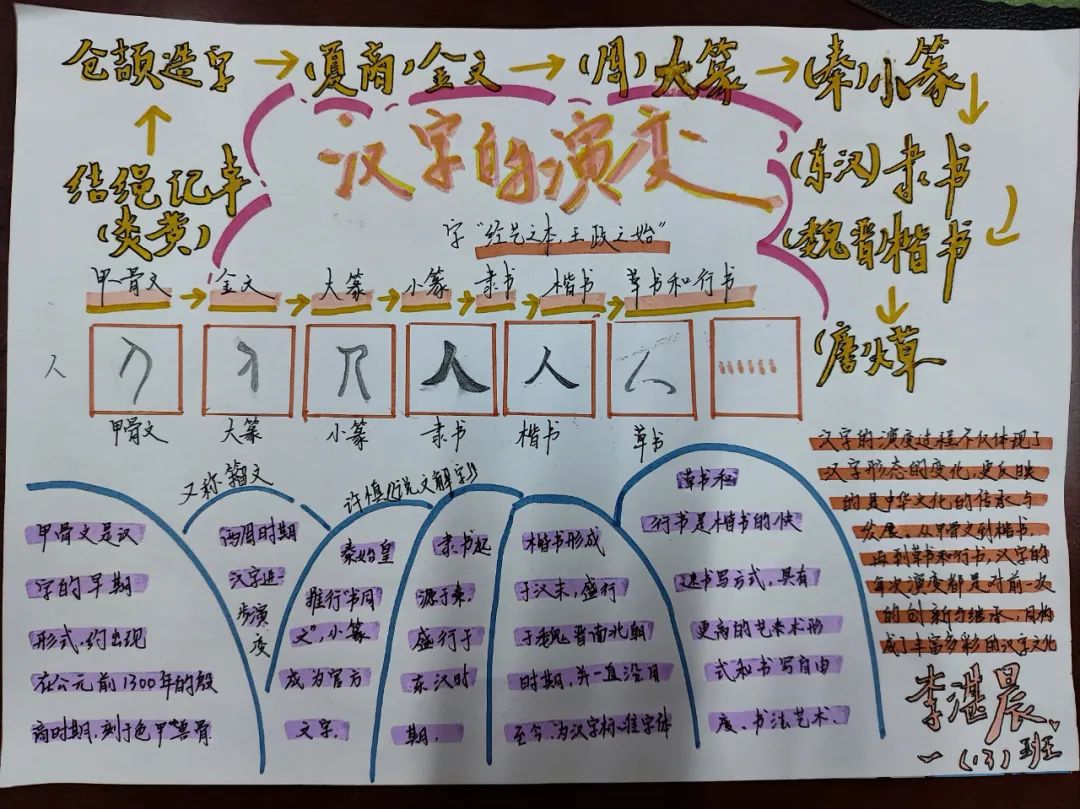 仓颉造字→(夏商)金文→(周)大篆→(秦)小篆
结绳记事
(炎黄)
(东汉)隶书
(魏晋)楷书
(唐)草
汉字的演变
字“经艺之本,王政之始”
甲骨文→金文→大篆→小篆→隶书→楷书→草书和行书
人
人 人
甲骨文 大篆 小篆 隶书 楷书 草书
甲骨文是汉
字的早期
形式,约出现
在公元前1300年的殷
商时期,刻于龟甲兽骨
又称籀文
两周时期
汉字进一
步演
度
许慎《说文解字》
秦始皇
推行“书同
文”,小篆
成为官方
文字.
隶书起
源于秦,
盛行于
东汉时
期.
楷书形成
于汉末,盛行
于魏晋南北朝
时期,并一直沿用
至今.为汉字标准字体
草书和
行书是楷书的快
速书写方式,具有
更高的艺术形
式和书写自由
度、书法艺术.
汉字的演度过程不仅体现了
汉字形态的变化,更反映
的是中华文化的传承与
发展。从甲骨文到楷书.
再到草书和行书,汉字的
每次演度都是对前一次
的创新与继承,
成了丰富多彩的汉字文化
李湛晨
一(13)班